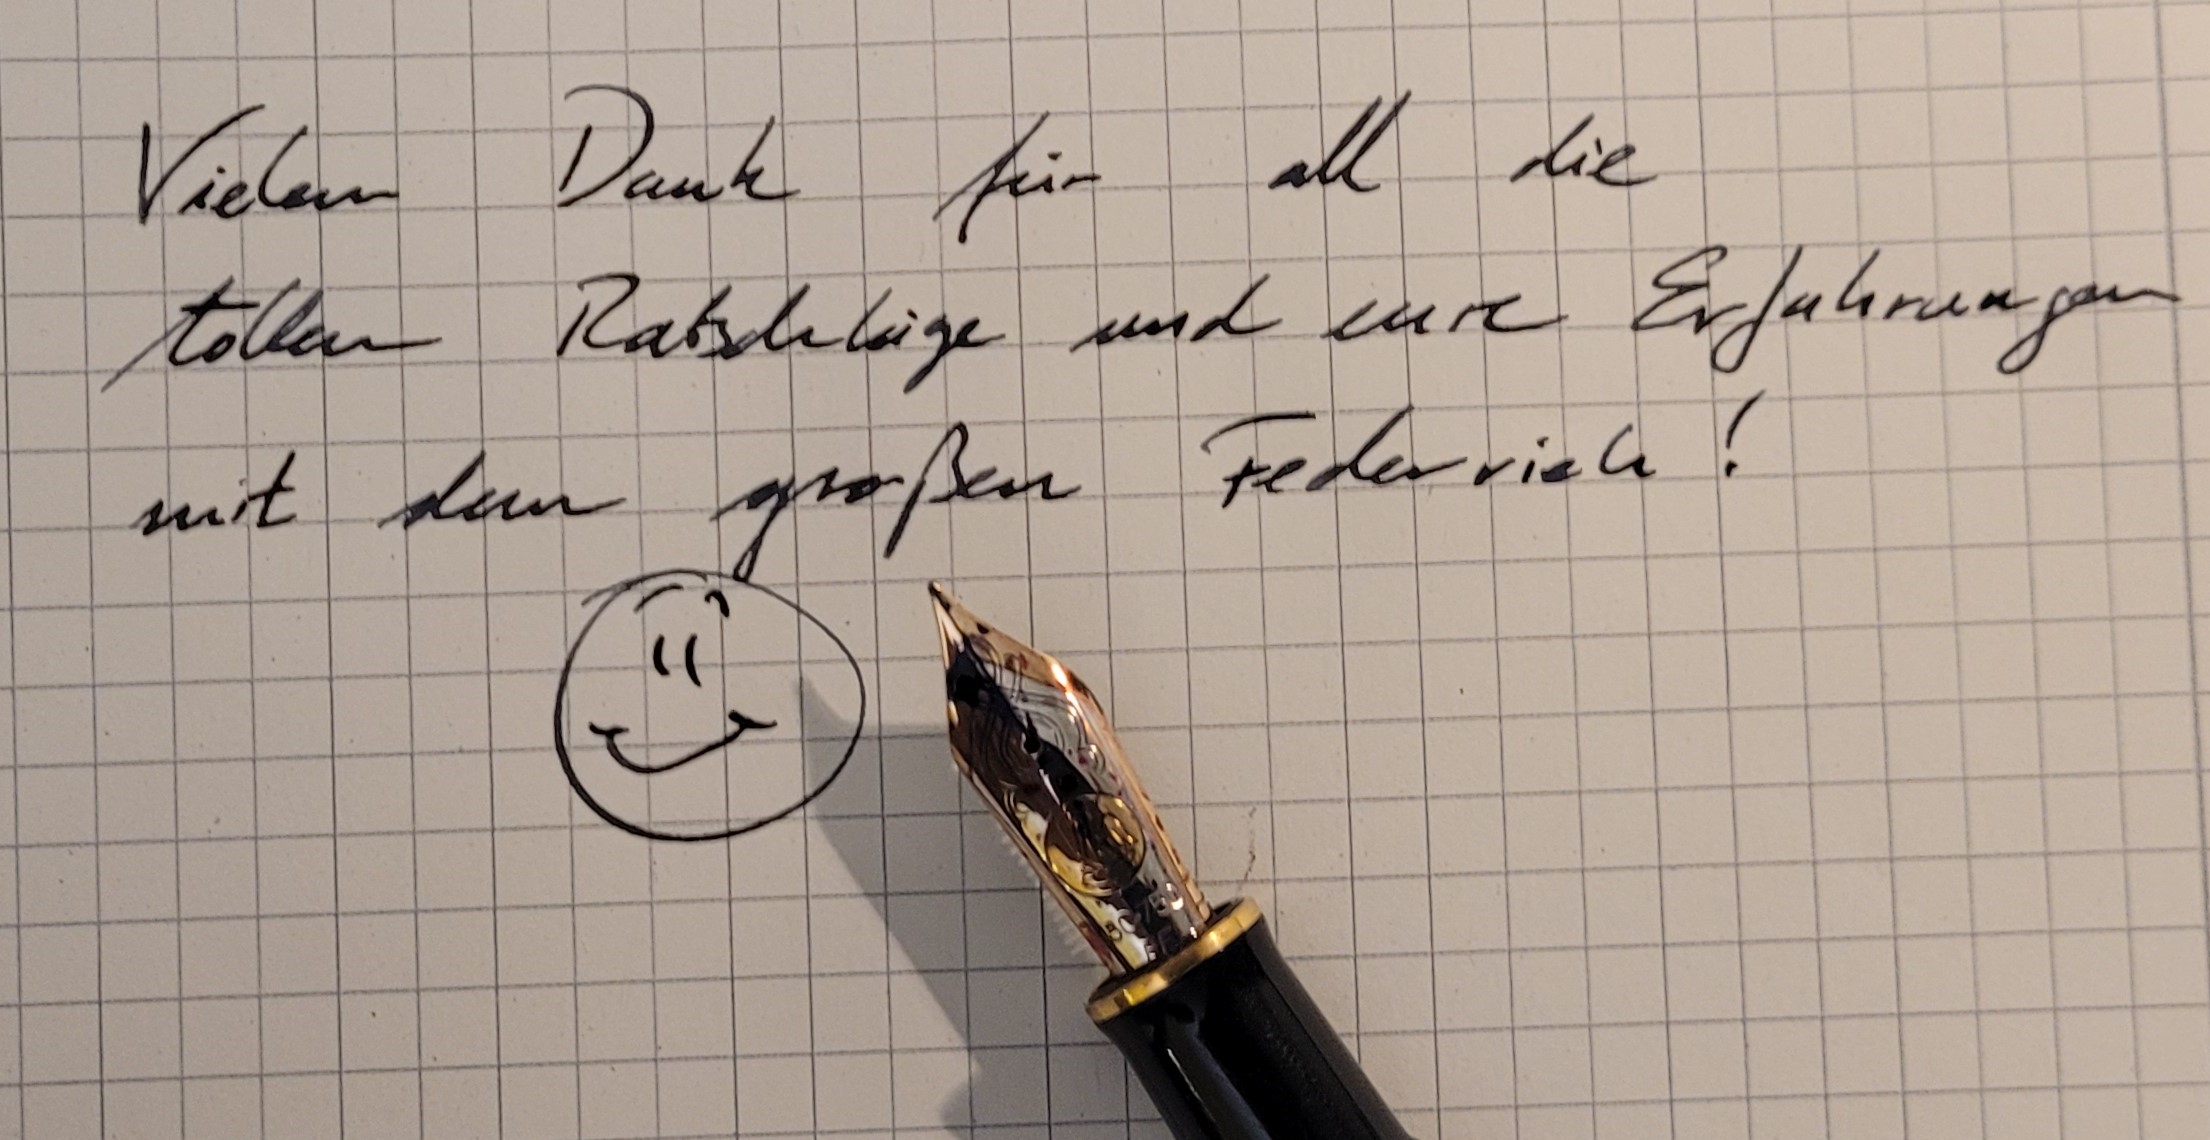 Vielen Dank für all die
tollen Ratschläge und eure Erfahrungen
mit dem großen Federvieh!